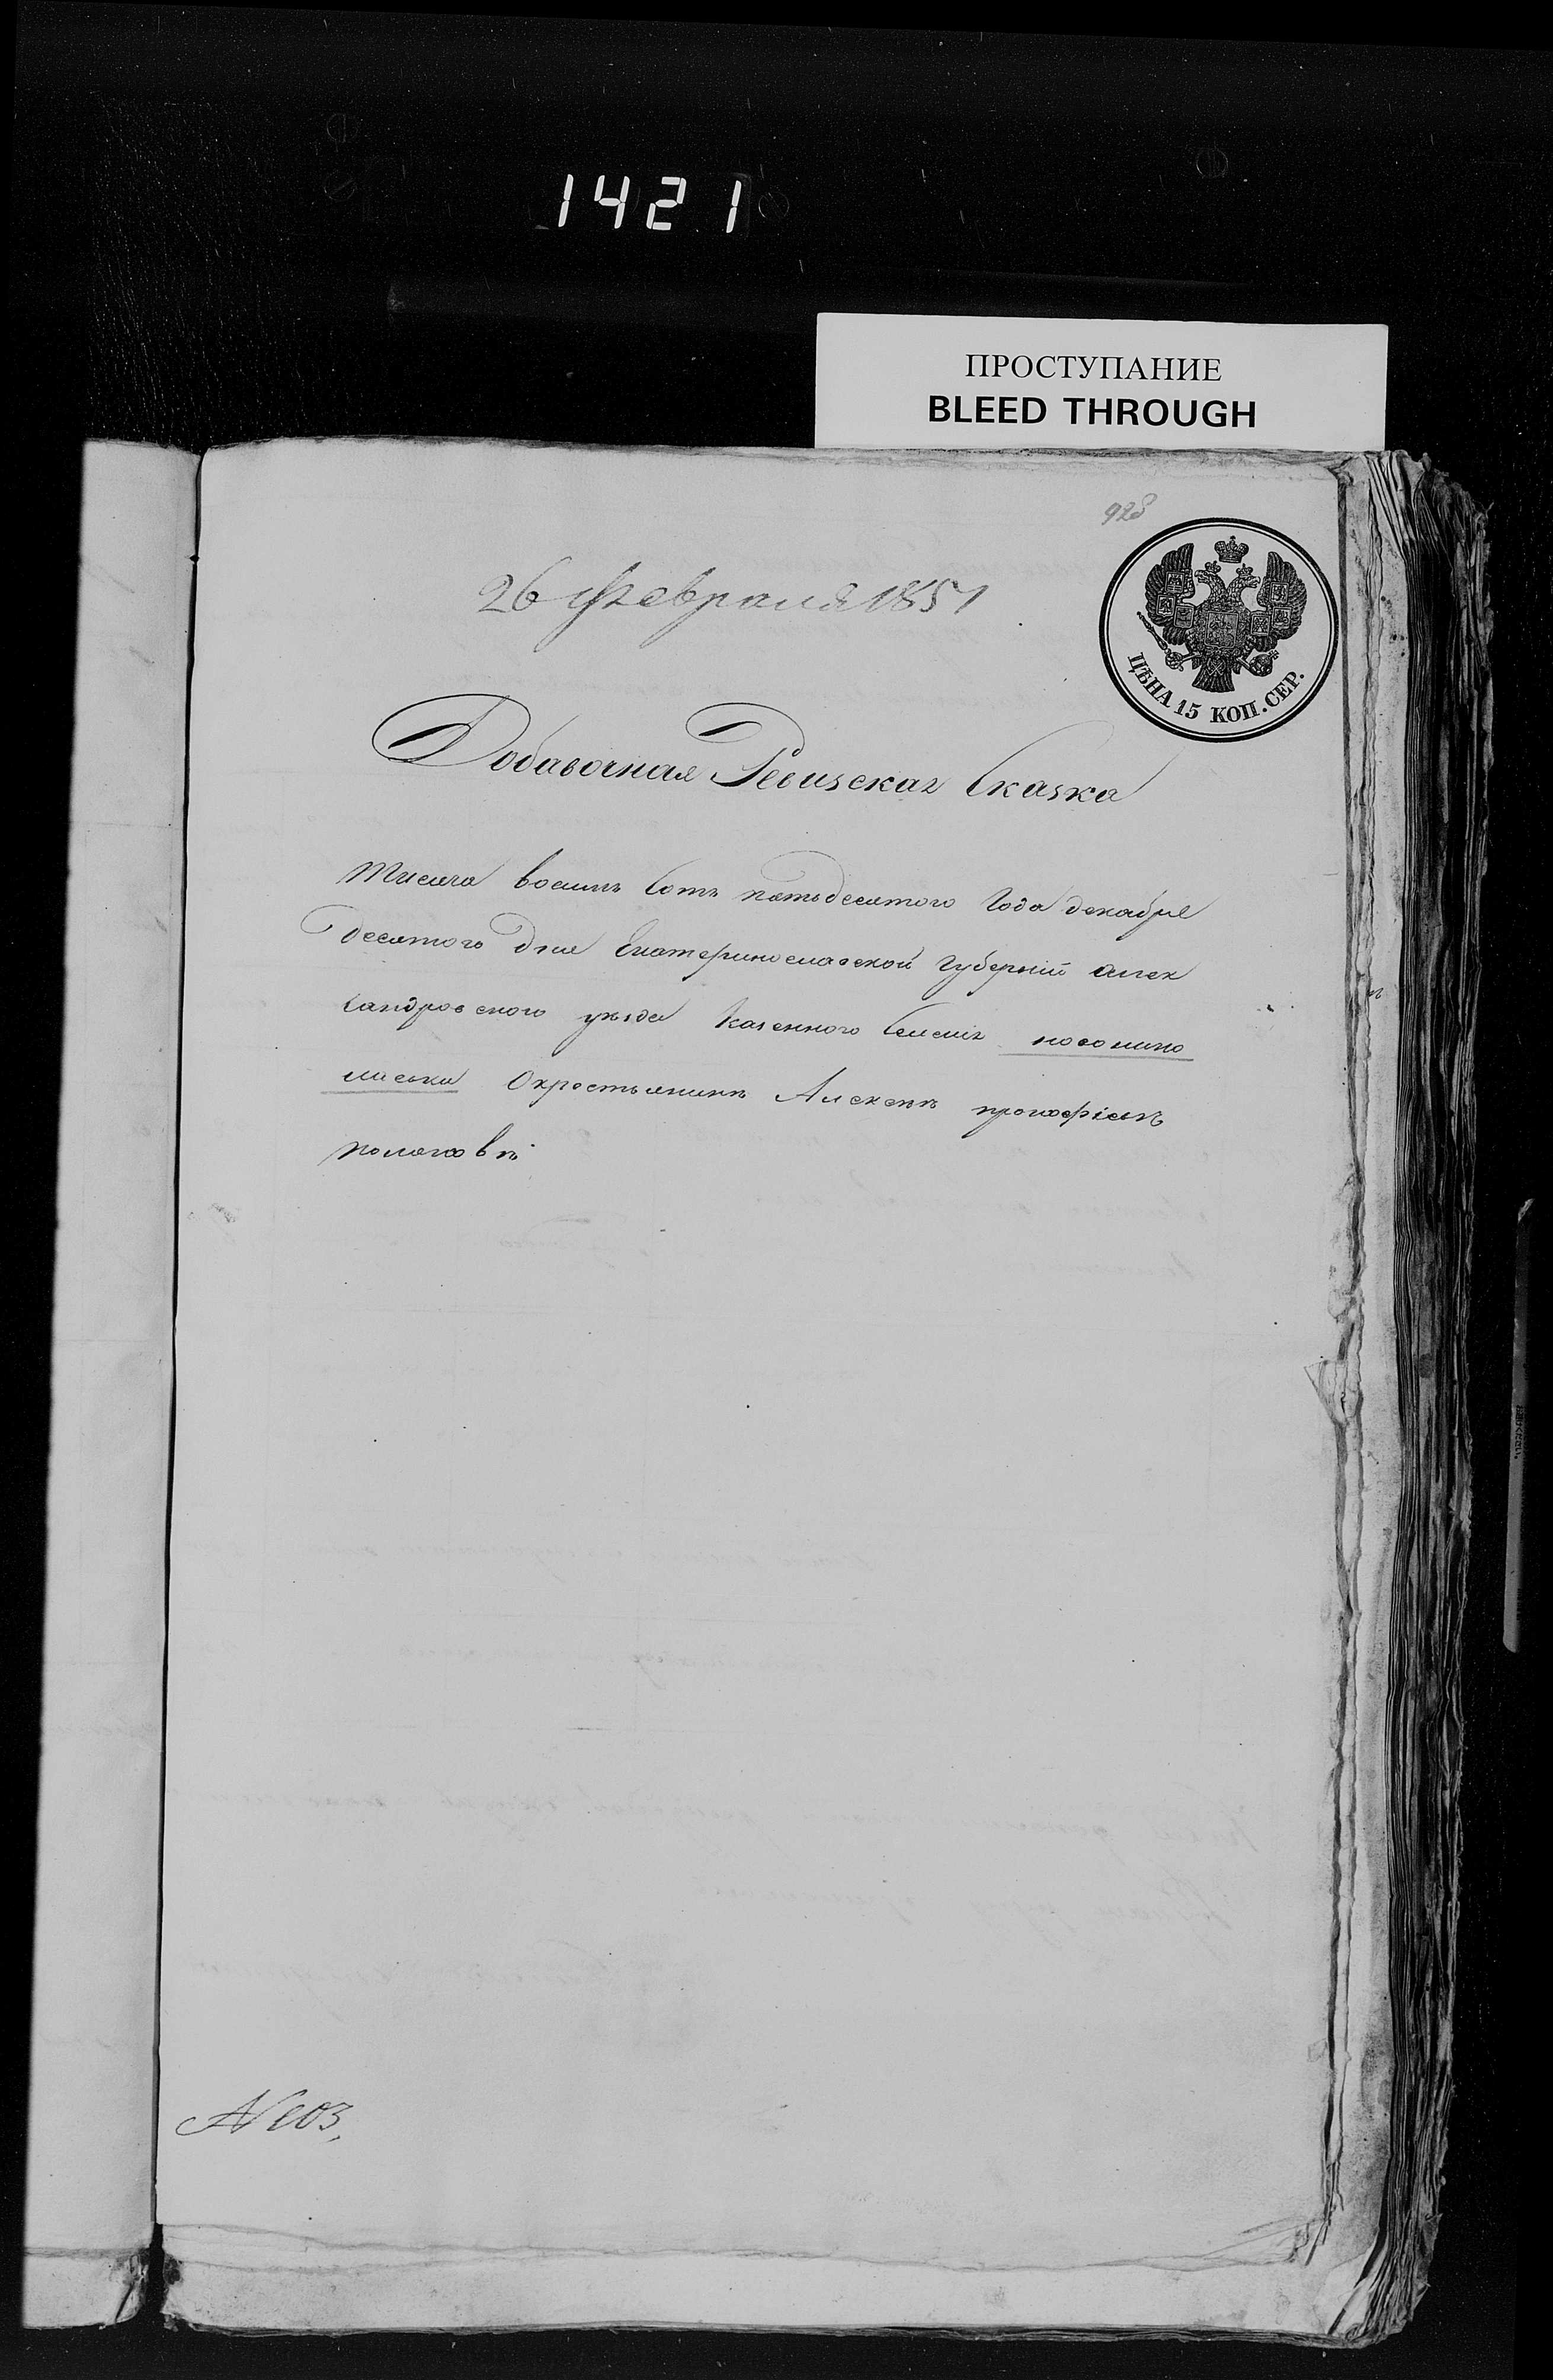 1421
ПРОСТУПАНИЕ
BLEED THROUGH
928
26 Февраля 1851
ЦѢНА 15 КОП. СЕР.
Добавочная Ревизская Сказка
тисяча восимъ сотъ пятьдесятого года декабря
десятого дня Екатеринославской губернїи алек
сандровского уезда казенного селенїя новонико
лаевки О крестьянинѣ Алексеѣ прокофіевѣ
поляковѣ
№ 103.